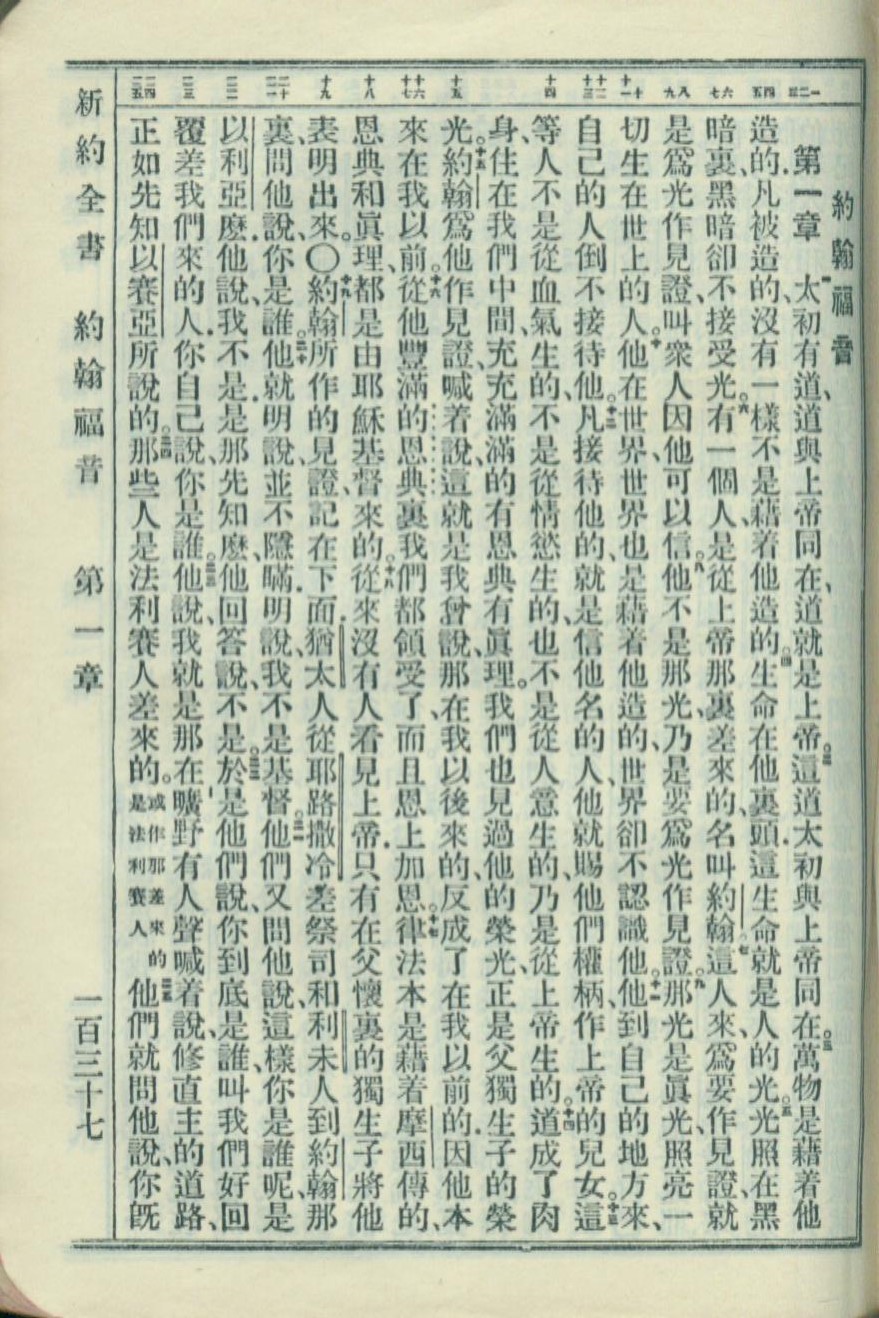 約翰福音
一 二 三 四 五 六 七 八 九 十 十一 十二 十三 十四 十五 十六 十七 十八 十九 二十 二一 二二 二三 二四 二五
第一章 一太初有道、道與上帝同在、道就是上帝。二這道太初與上帝同在。三萬物是藉着他
造的、凡被造的、沒有一樣不是藉着他造的。四生命在他裏頭、這生命就是人的光。五光照在黑
暗裏、黑暗卻不接受光。六有一個人、是從上帝那裏差來的、名叫約翰。七這人來、爲要作見證、就
是爲光作見證、叫衆人因他可以信。八他不是那光、乃是要爲光作見證。九那光是眞光、照亮一
切生在世上的人。十他在世界、世界也是藉着他造的、世界卻不認識他。十一他到自己的地方來、
自己的人倒不接待他。十二凡接待他的、就是信他名的人、他就賜他們權柄、作上帝的兒女。十三這
等人不是從血氣生的、不是從情慾生的、也不是從人意生的、乃是從上帝生的。十四道成了肉
身、住在我們中間、充充滿滿的有恩典有眞理。我們也見過他的榮光、正是父獨生子的榮
光。十五約翰爲他作見證、喊着說、這就是我曾說、那在我以後來的、反成了在我以前的、因他本
來在我以前。十六從他豐滿的恩典裏、我們都領受了、而且恩上加恩。十七律法本是藉着摩西傳的、
恩典和眞理、都是由耶穌基督來的。十八從來沒有人看見上帝、只有在父懷裏的獨生子將他
表明出來。〇十九約翰所作的見證、記在下面、猶太人從耶路撒冷差祭司和利未人到約翰那
裏、問他說、你是誰。二十他就明說、並不隱瞞、明說、我不是基督。二一他們又問他說、這樣你是誰呢、是
以利亞麼、他說、我不是、是那先知麼、他回答說、不是。二二於是他們說、你到底是誰、叫我們好回
覆差我們來的人、你自己說、你是誰。二三他說、我就是那在曠野有人聲喊着說、修直主的道路、
正如先知以賽亞所說的。二四那些人是法利賽人差來的。或作那差來的是法利賽人 二五他們就問他說、你旣
新約全書 約翰福音 第一章 一百三十七